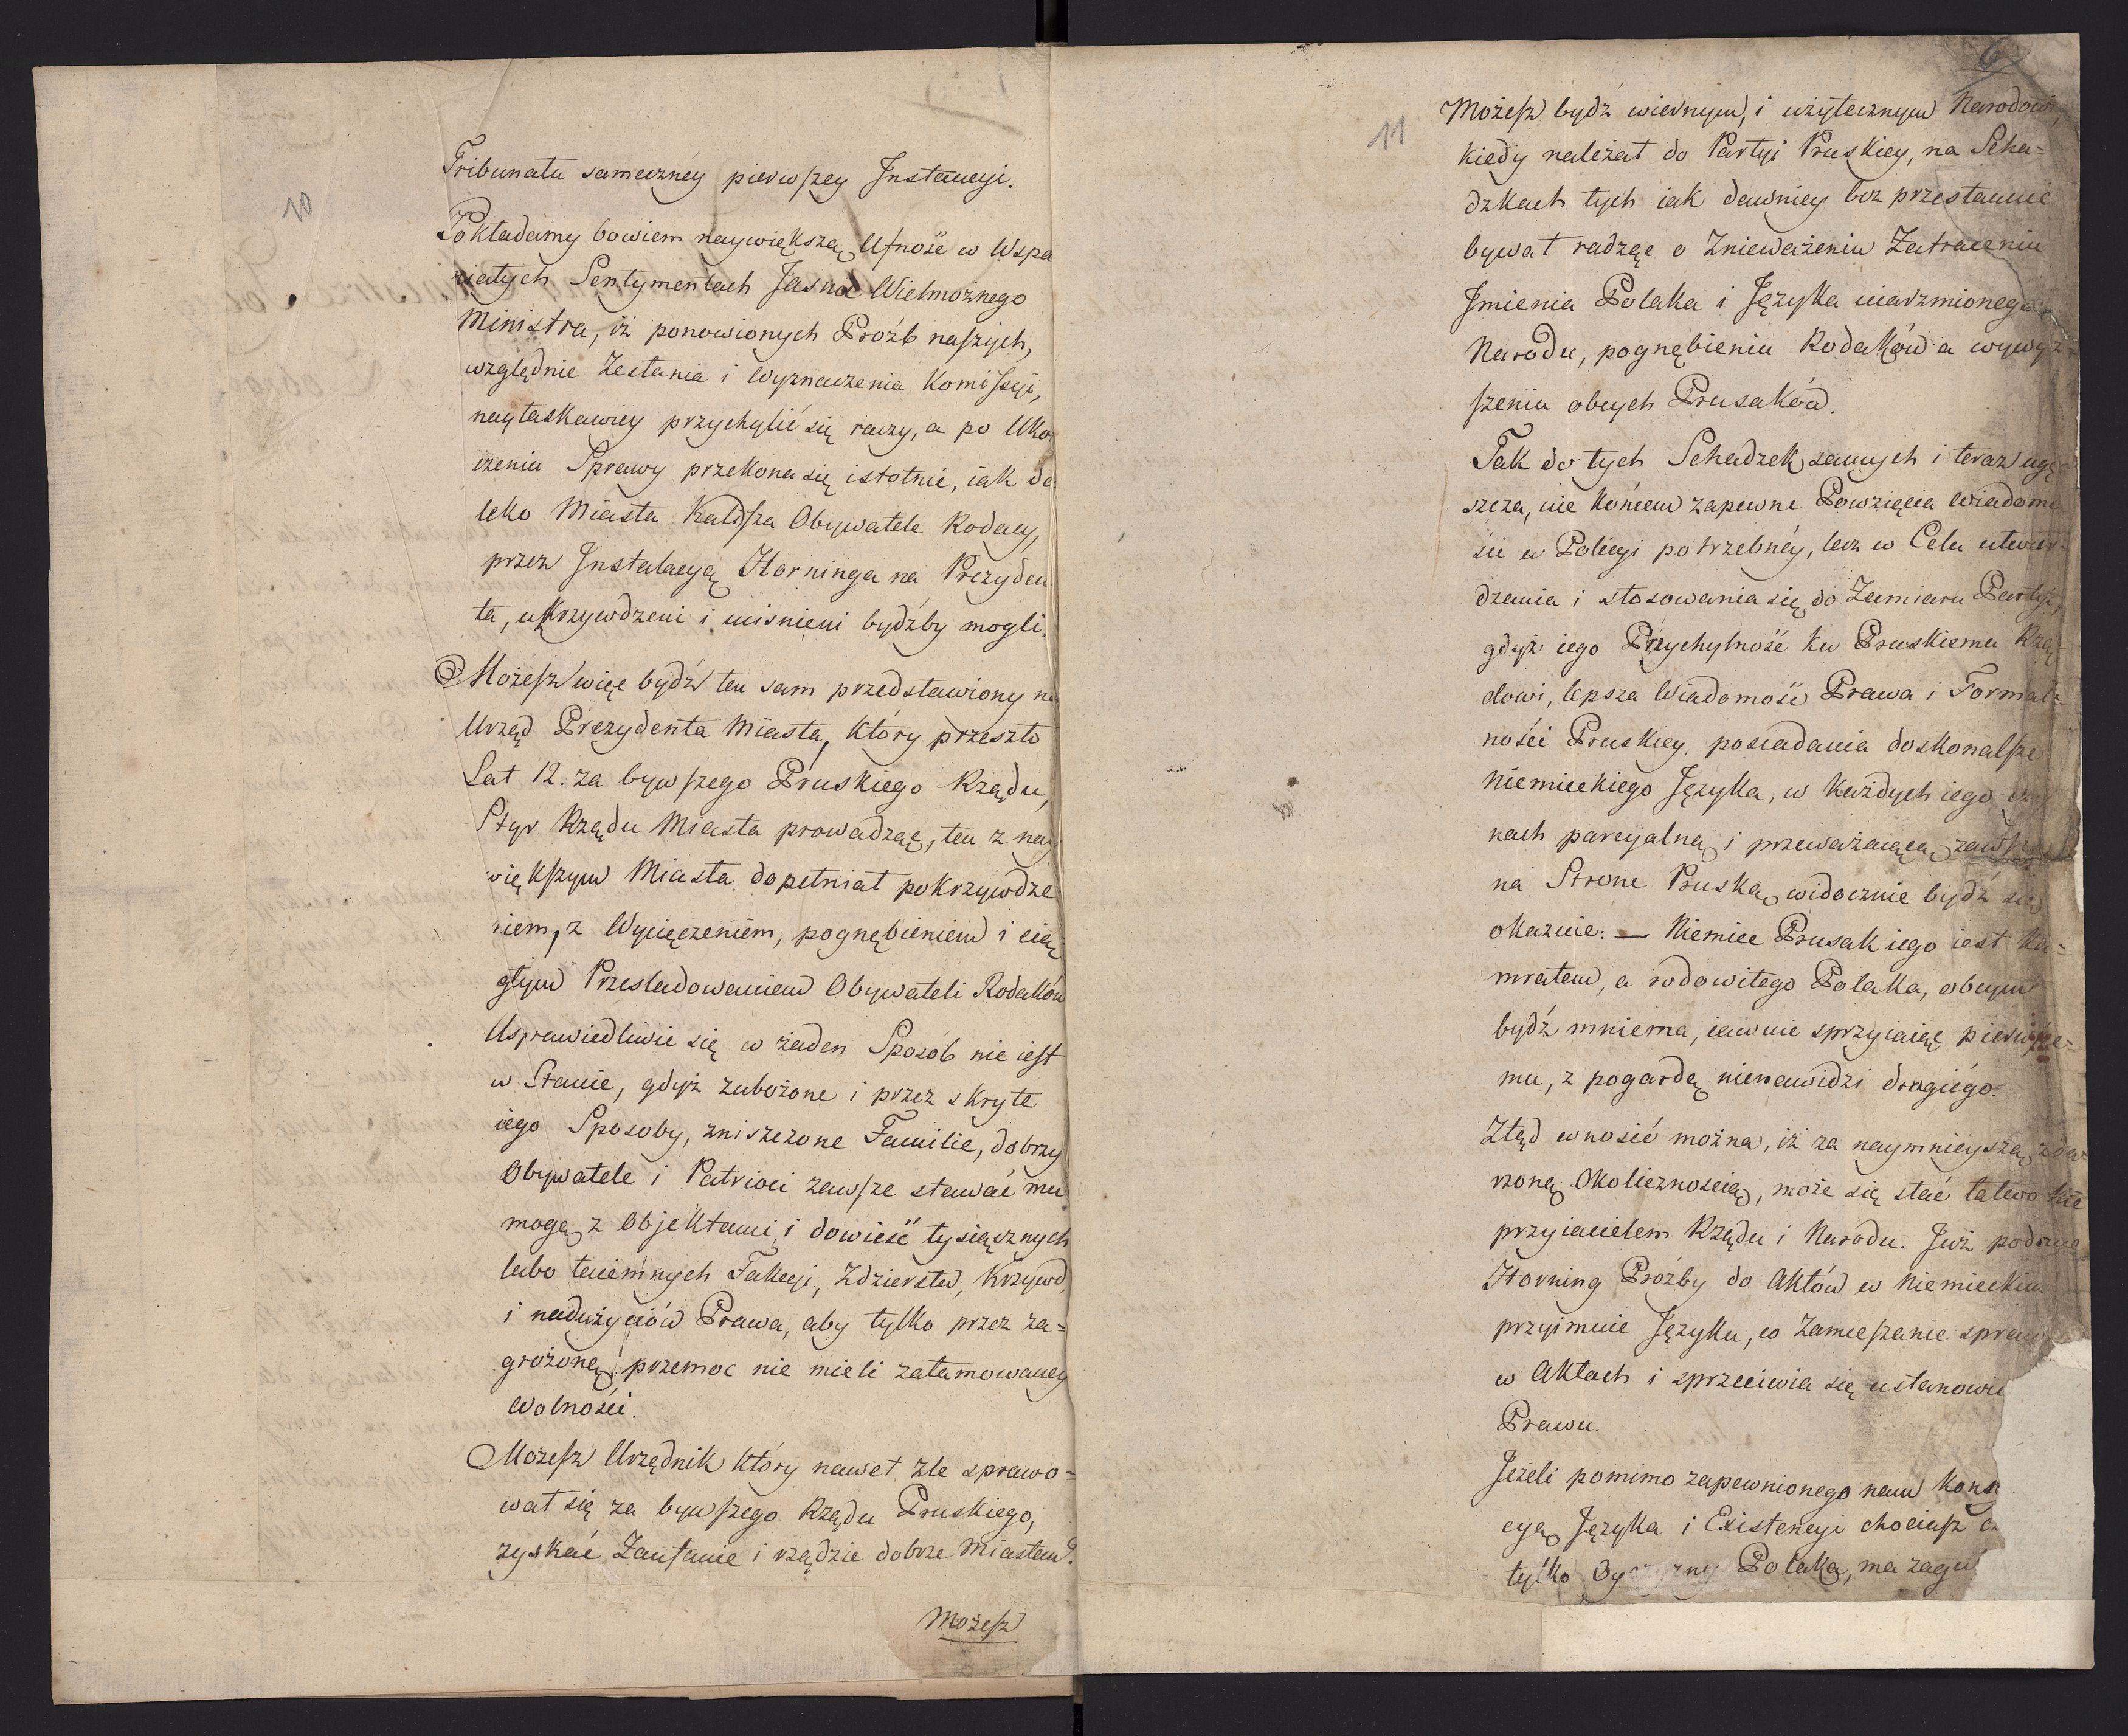 10
Tribunatu sameczney pierwszey Jnstancyi.
Pokładamy bowiem naywiększą Ufność w Wspa
niałych Sentymentach Jasnie Wielmożnego
Ministra, iż ponowionych Proźb naszych,
względnie Zesłania i Wyznaczenia Komissyi,
nayłaskawiey przychylić się raczy, a po Uko
czeniu Sprawy przekona się istotnie, iak da
leko Miasta Kalisza Obywatele Rodacy,
przez Jnstalacyą Horninga na Prezyden
ta, ukrzywdzeni i uciśnieni bydźby mogli.
Możesz więc bydź ten sam przedstawiony na
Urząd Prezydenta Miasta, który przeszło
Lat 12. za bywszego Pruskiego Rządu,
Styr Rządu Miasta prowadząc, ten z nay
większym Miasta dopełniał pokrzywdze
niem, z Wycięczeniem, pognębieniem i cią
głym Prześladowaniem Obywateli Rodaków
Usprawiedliwić się w żaden Sposób nie iest
w Stanie, gdyż zubożone i przez skryte
iego Sposoby, zniszczone Familie, dobrzy
Obywatele i Patrioci zawsze stawać mu
mogą z Objektami, i dowieść tysiącznych
lubo taiemnych Fakcyi, Zdzierstw, Krzywd,
i nadużyciów Prawa, aby tylko przez za=
grożoną przemoc nie mieli zatamowaney
Wolności.
Możesz Urzędnik który nawet źle sprawo=
wał się za bywszego Rządu Pruskiego,
zyskać Zaufanie i rządzić dobrze Miastem?
Możesz
6
11
Możesz bydź wiernym, i użytecznym Narodowi,
kiedy należał do Partyi Pruskiey, na Scha=
dzkach tych iak dawniey bez przestannie
bywał radząc o Znieważeniu Zatraceniu
Jmienia Polaka i Języka uiarzmionego
Narodu, pognębieniu Rodaków a wywyż
szeniu obcych Prusaków.
Tak do tych Schadzek samych i teraz uczę
szcza, nie końcem zapewne Powzięcia Wiadomo
ści w Policyi potrzebney, lecz w Celu utwier
dzania i stosowania się do Zamiaru Partyi,
gdyż iego Przychylność ku Pruskiemu Rzą
dowi, lepsza Wiadomość Prawa i Formal
ności Pruskiey, posiadania doskonalsze
Niemieckiego Języka, w każdych iego czy
nach parcyalną i przeważaiącą zawsze
na Strone Pruską widocznie bydź się
okazuie: — Niemiec Prusak iego iest Ka=
mratem, a rodowitego Polaka, obcym
bydź mniema, iawnie sprzyiaiąc pierwsze=
mu, z pogardą nienawidzi drugiego.
Ztąd wnosić można, iż za naymnieyszą zda
rzoną Okolicznością, może się stać łatwo nie
przyiacielem Rządu i Narodu. Już podane
Horning Proźby do Aktów w Niemieckim
przyimuie Języku, co Zamieszanie spraw
w Aktach i sprzeciwia się ustanowio
Prawu.
Jeżeli pomimo zapewnionego nam Kons
cyą Języka i Existencyi chociasz
tylko Polaka, ma